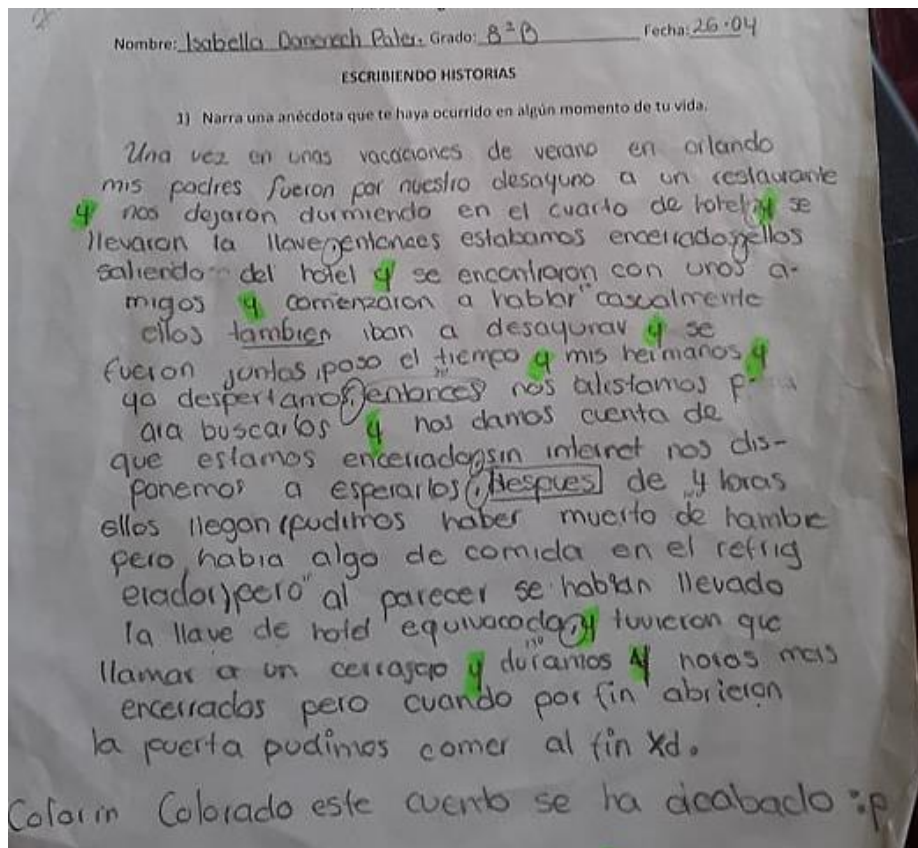 Nombre: Isabella Domenech Pater. Grado: 8°B Fecha: 26-04
ESCRIBIENDO HISTORIAS
1) Narra una anécdota que te haya ocurrido en algún momento de tu vida.
Una vez en unas vacaciones de verano en orlando
mis padres fueron por nuestro desayuno a un restaurante
y nos dejaron durmiendo en el cuarto de hotel, y se
llevaron la llave, entonces estabamos encerrados, y ellos
saliendo del hotel y se encontraron con unos a-
migos y comenzaron a hablar casualmente
ellos tambien iban a desayunar y se
fueron juntos, paso el tiempo y mis hermanos y
yo despertamos, entonces nos alistamos p
ara buscarlos y nos damos cuenta de
que estamos encerrados, sin internet nos dis-
ponemos a esperarlos, despues de 4 horas
ellos llegan (pudimos haber muerto de hambre
pero habia algo de comida en el refrig
erador) pero al parecer se habian llevado
la llave de hotel equivocada, y tuvieron que
llamar a un cerrajero y duramos 4 horas mas
encerrados pero cuando por fin abrieron
la puerta pudimos comer al fin Xd.
Colorin Colorado este cuento se ha acabado :p